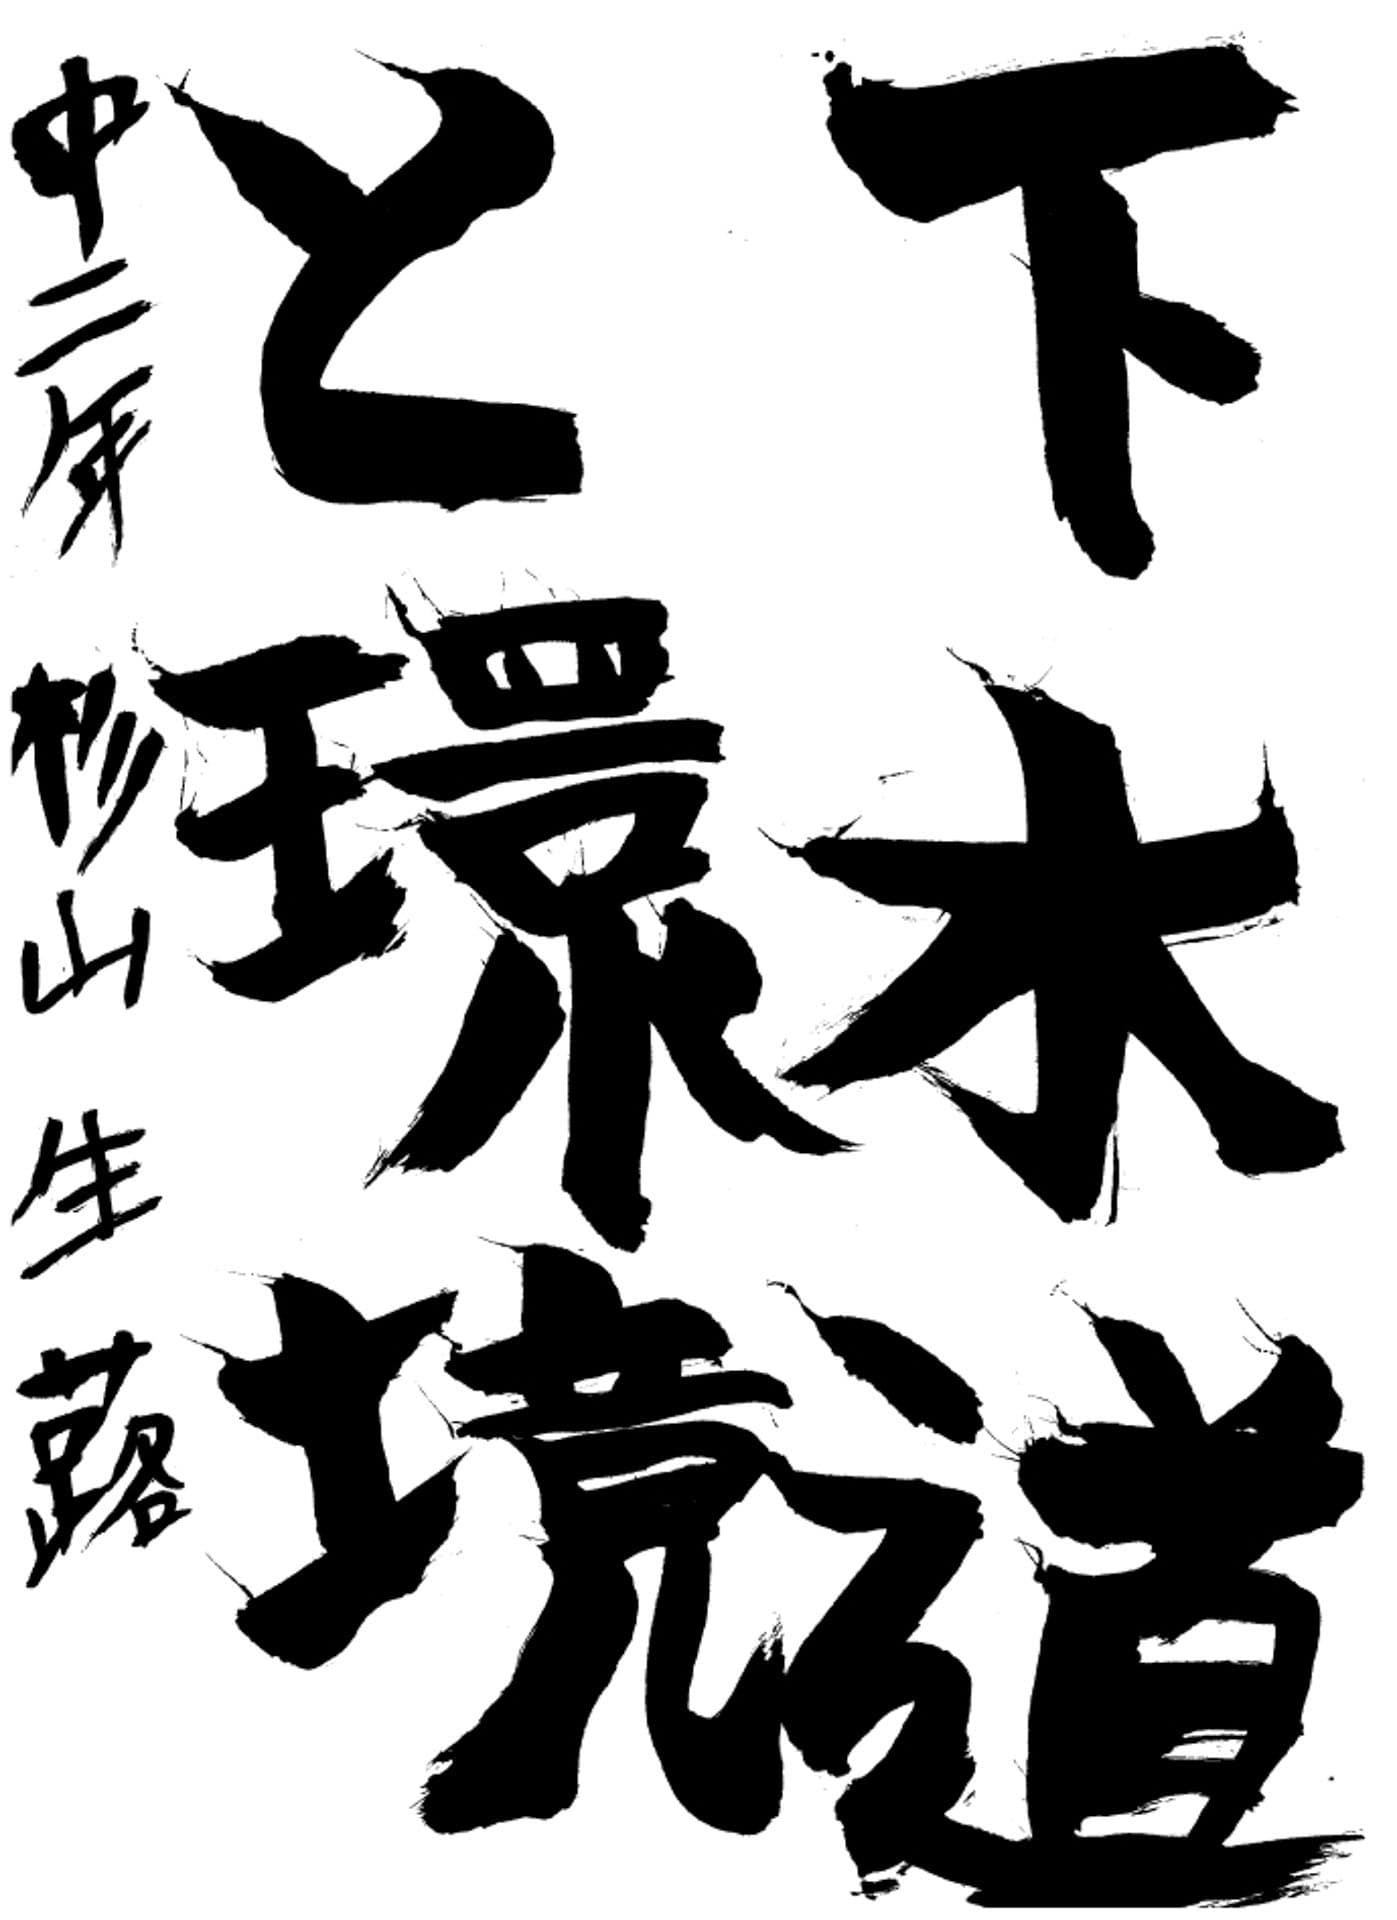 下水道
と環境
中二年 杉山生蕗